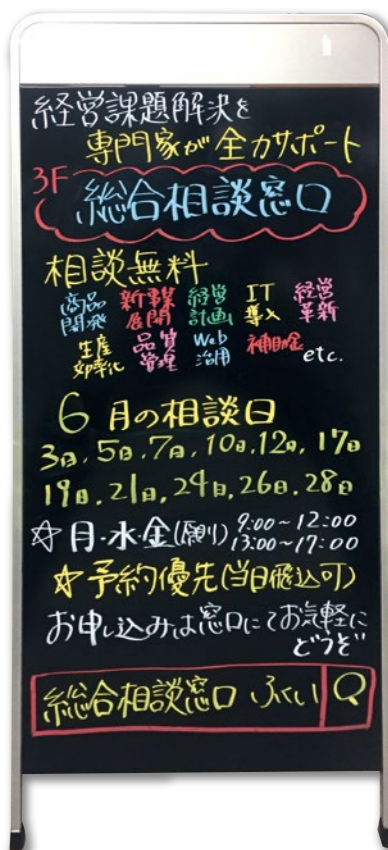 経営課題解決を
専門家が全力サポート
3F
総合相談窓口
相談無料
商品開発 新事業展開 経営計画 IT導入 経営革新
生産効率化 品質管理 Web活用 補助金 etc.
6月の相談日
3日.5日.7日.10日.12日.17日
19日.21日.24日.26日.28日
☆月・水・金(原則) 9:00〜12:00
13:00〜17:00
☆予約優先(当日飛込可)
お申し込みは窓口にてお気軽に
どうぞ
総合相談窓口 ふくい Q